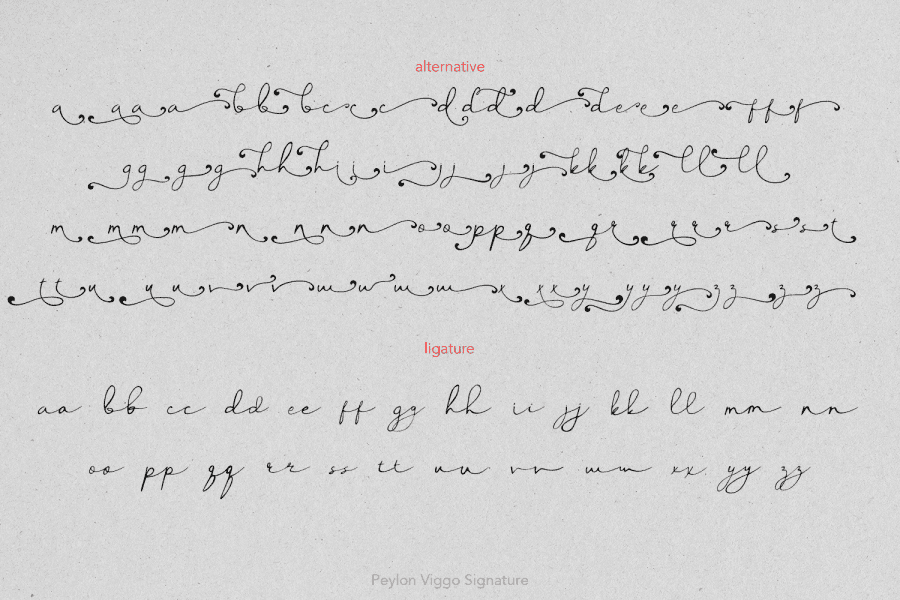 alternative
a aaa bb bccc d dd d deee fff
gg g g hh h i i i jj j j kk kk ll ll
m mm m n n n n o o pp q q r r r r s s t
tt u u u v v v w w w w x x x y y y y z z z z
ligature
aa bb cc dd ee ff gg hh ii jj kk ll mm nn
oo pp qq rr ss tt uu vv ww xx yy zz
Peylon Viggo Signature